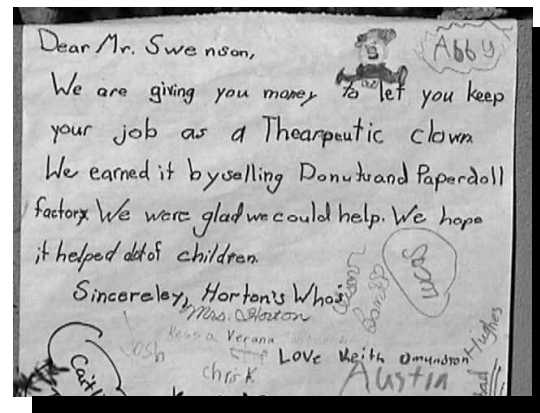 Dear Mr. Swenson,
Abby
We are giving you money to let you keep
your job as a Thearpeutic clown
We earned it by selling Donuts and Paperdoll
factory. We were glad we could help. We hope
it helped alot of children.
Sincereley, Horton's Who's
Mrs. Horton
Verona
Josh
Chris K
Love Keith Omundson
Austin
Hughes
Caitlin